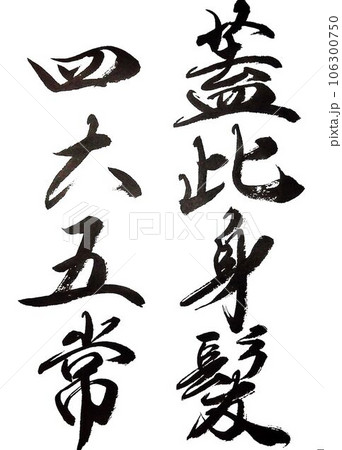 蓋此身髮
四大五常
PIXTA
pixta.jp - 106300750